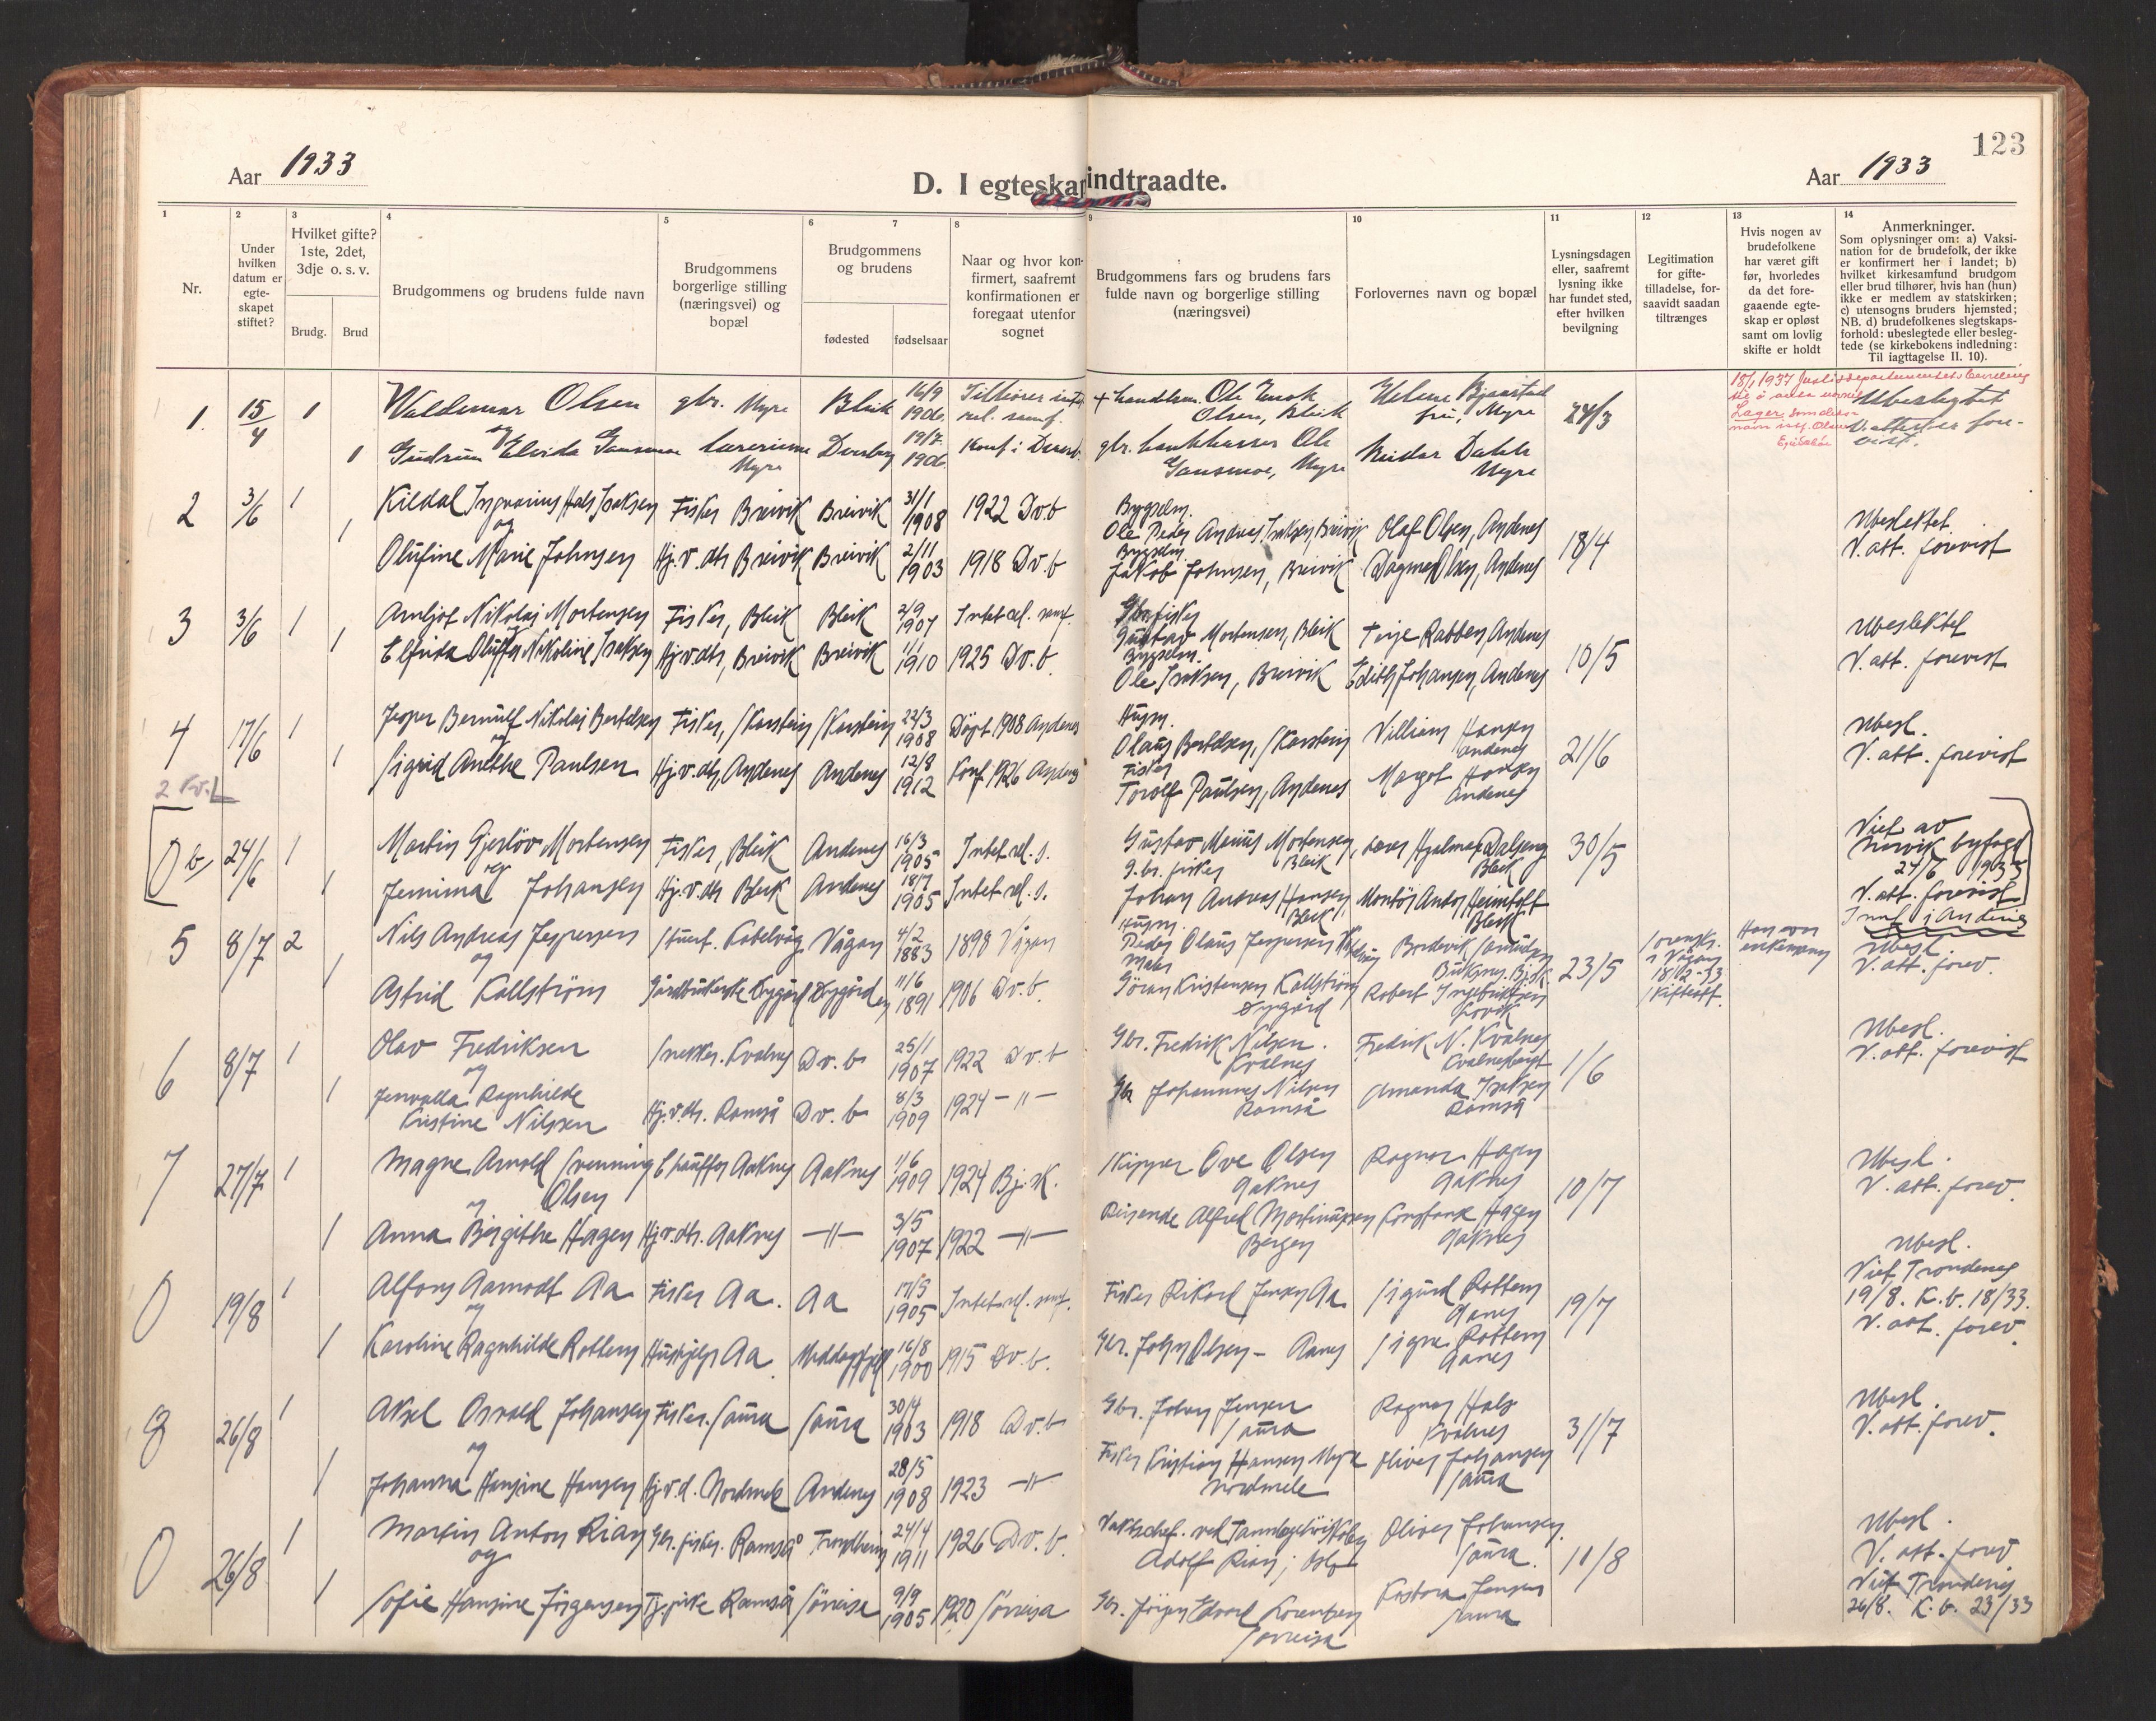 123
Aar 1933
D. I egteskap indtraadte.
Aar 1933
1 2 3 4 5 6 7 8 9 10 11 12 13 14
Nr.
Under hvilken datum er egte-skapet stiftet?
Hvilket gifte? 1ste, 2det, 3dje o. s. v.
Brudg. Brud
Brudgommens og brudens fulde navn
Brudgommens borgerlige stilling (næringsvei) og bopæl
Brudgommens og brudens
fødested fødselsaar
Naar og hvor kon-firmert, saafremt konfirmationen er foregaat utenfor sognet
Brudgommens fars og brudens fars fulde navn og borgerlige stilling (næringsvei)
Forlovernes navn og bopæl
Lysningsdagen eller, saafremt lysning ikke har fundet sted, efter hvilken bevilgning
Legitimation for gifte-tilladelse, for-saavidt saadan tiltrænges
Hvis nogen av brudefolkene har været gift før, hvorledes da det fore-gaaende egte-skap er opløst samt om lovlig skifte er holdt
Anmerkninger.
Som oplysninger om: a) Vaksi-nation for de brudefolk, der ikke er konfirmert her i landet; b) hvilket kirkesamfund brudgom eller brud tilhører, hvis han (hun) ikke er medlem av statskirken; c) utensogns bruders hjemsted; NB. d) brudefolkenes slegtskaps-forhold: ubeslegtede eller besleg-tede (se kirkebokens indledning: Til iagttagelse II. 10).
1. 15/4 1 Waldemar Olsen gbr. Myre Bleik 16/9 1906. Tilhører intet rel. samf.
+ handelsm. Ole Enok Olsen, Bleik
Helene Bjaastad frú, Myre
24/3
Ubeslegtet
V. attester fore-vist.
18/1 1937 Justisdepartementets bevilling
Lager, som deres
og
1 Gudrun Elvida Gansmoe lærerinne Myre Dverberg 19/7 1906 Konf. i Dverb.
gbr. bankkasser Ole Gansmoe, Myre
Reidar Dahl Myre
2 3/6 1 Kildal Ingvarius Hals Isaksen Fisker Breivik Breivik 31/1 1908 1922 Dv.b
Bygselm. Ole Peder Andreas Isaksen, Breivik
Olaf Olsen, Andenes
18/4
Ubeslektet
V. att. forevist
og
1 Olufine Marie Johnsen Hj.v. dtr Breivik Breivik 2/11 1903 1918 Dv.b
Bygselm. Jakob Johnsen, Breivik
Dagmar Olsen, Andenes
3 3/6 1 Arnljot Nikolai Mortensen Fisker, Bleik Bleik 2/9 1907 Intet rel. samf.
Gbr. fisker Gustav Mortensen, Bleik
Terje Rabben, Andenes
10/5
Ubeslektet
V. att. forevist
1 Elfrida Oluffa Nikoline Isaksen Hj.v. dtr, Breivik Breivik 1/1 1910 1925 Dv.b.
Bygselm. Ole Isaksen, Breivik
Edith Johansen, Andenes
4 17/6 1 Jesper Bernulf Nikolai Bertelsen Fisker, Skarstein Skarstein 22/3 1908 Døpt 1908 Andenes
Husm. Olaus Bertelsen, Skarstein
William Hansen Andenes
21/6
Ubesl.
V. att. forevist
og
1 Sigrid Anethe Paulsen Hj.v. dtr, Andenes Andenes 12/8 1912 Konf. 1926 Andenes
Fisker Torolf Paulsen, Andenes
Margot Hansen Andenes
0 b, 24/6 1 Martin Gjerløv Mortensen Fisker, Bleik Andenes 16/3 1905 Intet rel. s.
Gustav Marius Mortensen, g.br. fisker Bleik
lærer Hjalmar Dalseng Bleik
30/5
Viet av Narvik byfogd 24/6 1933
V. att. forevist
Innf. i Andenes
og
1 Jemima Johansen Hj.v. dtr Bleik Andenes 18/7 1905 Intet rel. s.
Johan Andreas Hansen, Husm. Bleik
Montør Anton Heimtoft Bleik
5 8/7 2 Nils Andreas Jespersen Stuert. Kabelvåg Vågan 4/2 1883 1898 Vågan
Peder Olaus Jespersen
23/5
Sorenskr. i Vågan 18/2-33 Skifteatt.
Han var enkemann
Ubesl.
V. att. forev.
og
1 Astrid Kallström Gårdbrukerske Dyrgård 11/6 1891 1906 Dv.b.
Maler Göran Kristensen Kallström
Robert Ingebriktsen Lovik
6 8/7 1 Olav Fredriksen Snekker. Kvalnes Dv.b 25/1 1907 1922 Dv.b
Gbr. Fredrik Nilsen. Kvalnes
Fredrik N. Kvalnes
1/6
Ubesl.
V. att. forevist
og
1 Jenvalla Ragnhilde Kristine Nilsen Hj.v. dtr. Ramså Dv.b 8/3 1909 1924 – " –
Gbr Johannes Nilsen Ramså
Amanda Isaksen Ramså
7 27/7 1 Magne Arnold Svenning Olsen Chauffør Aaknes Aaknes 1/6 1909 1924 Bj.sk.
Skipper Ove Olsen Aaknes
Ragnar Hagen Aaknes
10/7
Ubesl.
V. att. forev.
og
1 Anna Birgithe Hagen Hj.v. dtr. Aaknes – " – 3/5 1907 1922 – " –
Reisende Alfred Martinussen Bergen
Konstanse Hagen Aaknes
0 19/8 1 Alfons Aamodt Aa Fisker Aa. Aa 17/5 1905 Intet rel. samf.
Fisker Rikard Jensen Aa
Sigurd Rottem Aanes
19/7
Ubesl.
Viet Trondenes 19/8. K.b. 18/33.
V. att. forev.
og
1 Karoline Ragnhilde Rottem Hushjelp Aa 16/8 1900 1915 Dv.b.
Gbr. John Olsen – Aanes
Signe Rottem Aanes
8 26/8 1 Aksel Osvald Johansen Fisker. Saura Saura 30/4 1903 1918 Dv.b
Gbr. Johan Jensen Saura
Ragnar Hals Kvalnes
31/7
Ubesl.
V. att. forev.
og
1 Johanna Hansine Hansen Hj.v.d. Nordmele Andenes 28/5 1908 1923 – " –
Fisker Kristian Hansen Myre Nordmele
Oliver Johansen Saura
0 26/8 1 Martin Anton Rian Gbr. fisker. Ramså Trondheim 24/4 1911 1926 Dv.b.
Adolf Rian, Oslo
Oliver Johansen. Saura.
11/8
Ubesl.
V. att. forev
Viet Trondenes 26/8. K.b. 23/33
og
1 Sofie Hansine Jörgensen Ramså Sörreisa 9/9 1905 1920 Sörreisa
Gbr. Jörgen Edvard Lorentsen Sörreisa
Kastora Jensen Saura